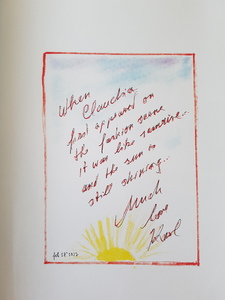 When
Claudia
first appeared on
the fashion scene
it was like sunrise...
and the sun is
still shining...
Much
love
Karl